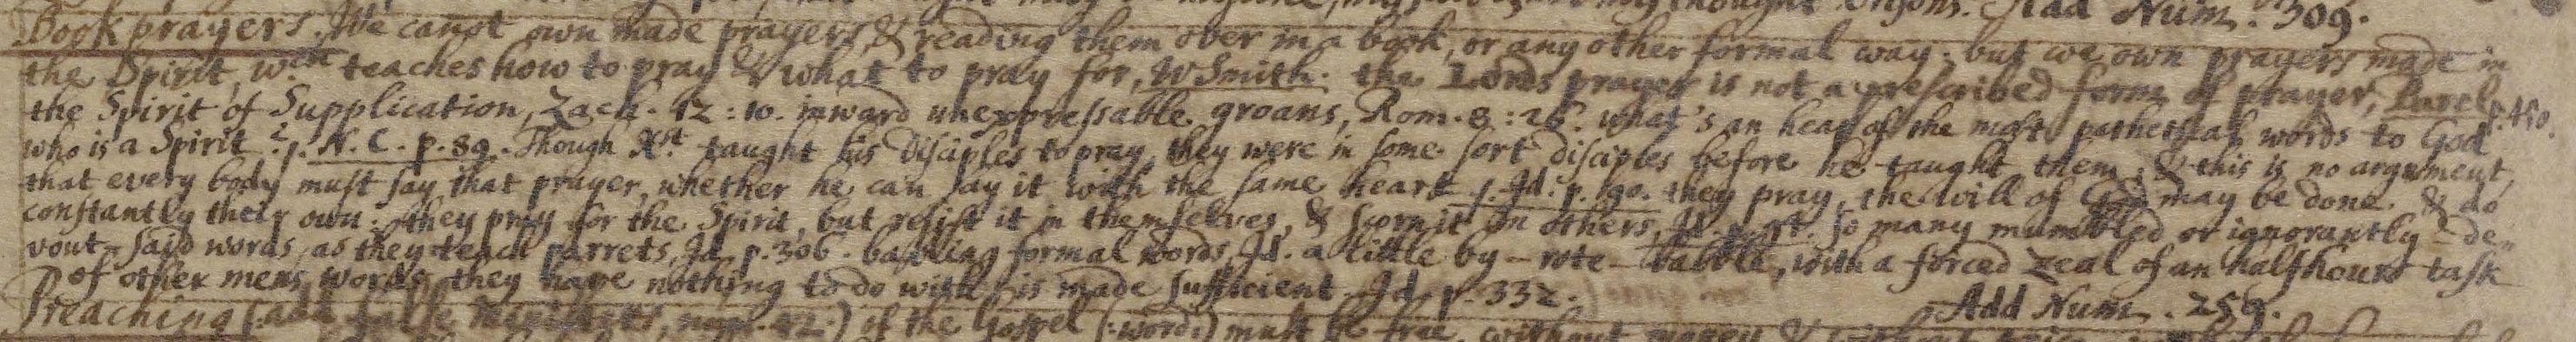 thought Add Num. 309.
Book prayers. We canot own made prayers, & reading them over in a book, or any other formal way: but we own prayers made in
the Spirit, wch teaches how to pray & what to pray for, W Smith. the Lords prayer is not a prescribed forme of prayer, Barcl. p. 450.
the Spirit of Supplication, Zach. 12:10. inward unexpressable groans, Rom. 8:26. what's an heap of the most pathetical words to God
who is a Spirit? N. C. p. 89. Though Xst. taught his Disciples to pray, they were in some sort disciples before he taught them, & this is no argument,
that every body must say that prayer, whether he can say it with the same heart. Id. p. 90. they pray, the will of God may be done & do
constantly their own: they pray for the Spirit, but resist it in themselves, & scorn it in others, Id. p. so many mumbled or ignorantly-de-
vout-said words, as they teach parrets, Id. p. 306. babling formal words, Id. a little by-rote-babble, with a forced zeal of an halfhours task
of other mens words they have nothing to do with is made sufficient. Id. p. 332. Add Num. 259.
Preaching (add false Ministers, num. 42.) of the Gospel (:word:) must be free, without money & without